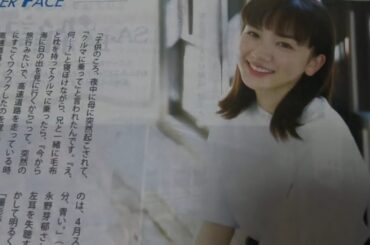 ER FACE
「子供のころ、夜中に母に突然起こされて、
『クルマに乗って』と言われたんです。『え、
何…?』と寝ぼけながら、兄と一緒に毛布
と枕を持ってクルマに乗ったら、『今から
海に日の出を見に行くから』って。突然の
旅行みたいで、高速道路を走っている時
にすごくワクワクしたのを覚
のは、4月ス
分、青い。』(
永野芽郁さ
左耳を失聴す
かして明るく